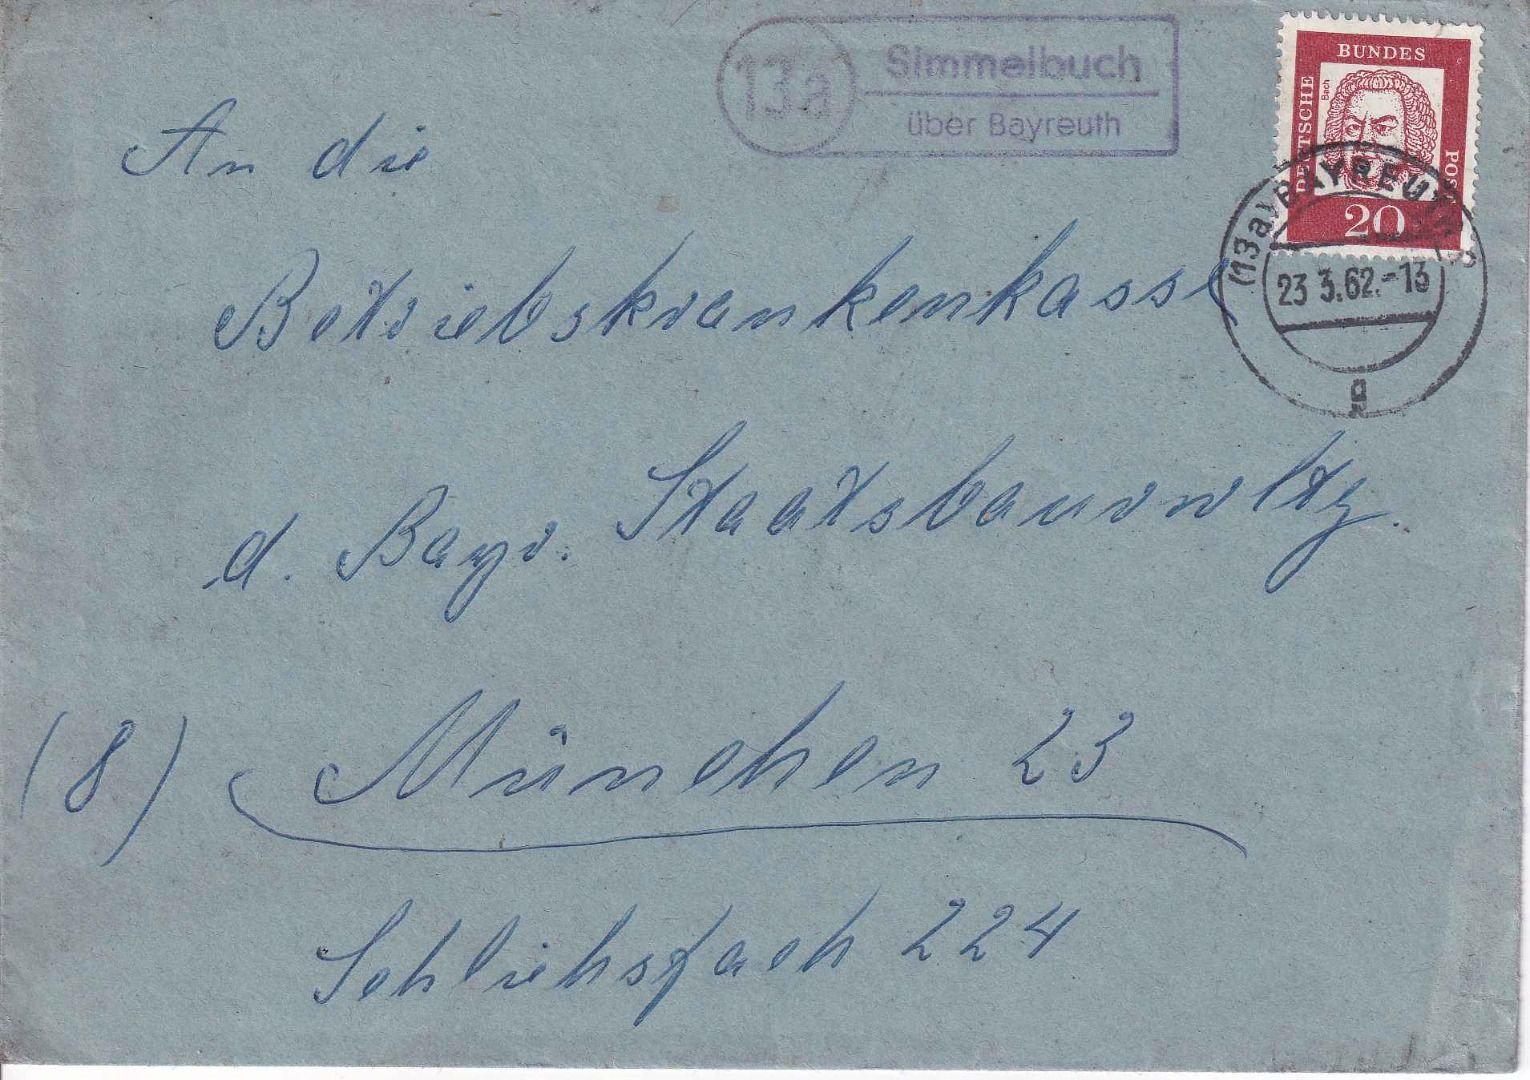 13a
Simmelbuch
über Bayreuth
DEUTSCHE
BUNDES
POST
Bach
20
(13a) BAYREUTH 2
23 3.62.-13
g
An die
Betriebskrankenkasse
d. Bayr. Staatsbauvwltg.
(8) München 23
Schliehsfach 224